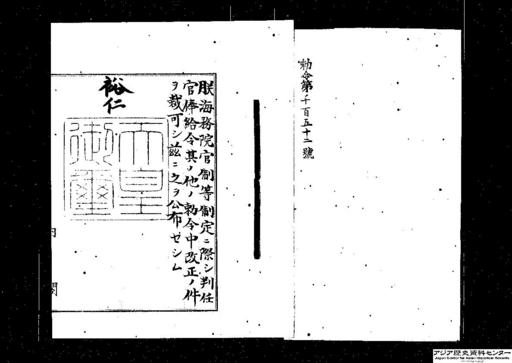 勅令第千百五十二號
朕海務院官制等制定ニ際シ判任
官俸給令其ノ他ノ勅令中改正ノ件
ヲ裁可シ茲ニ之ヲ公布セシム
裕仁
天皇
御璽
内閣
アジア歴史資料センター
Japan Center for Asian Historical Records